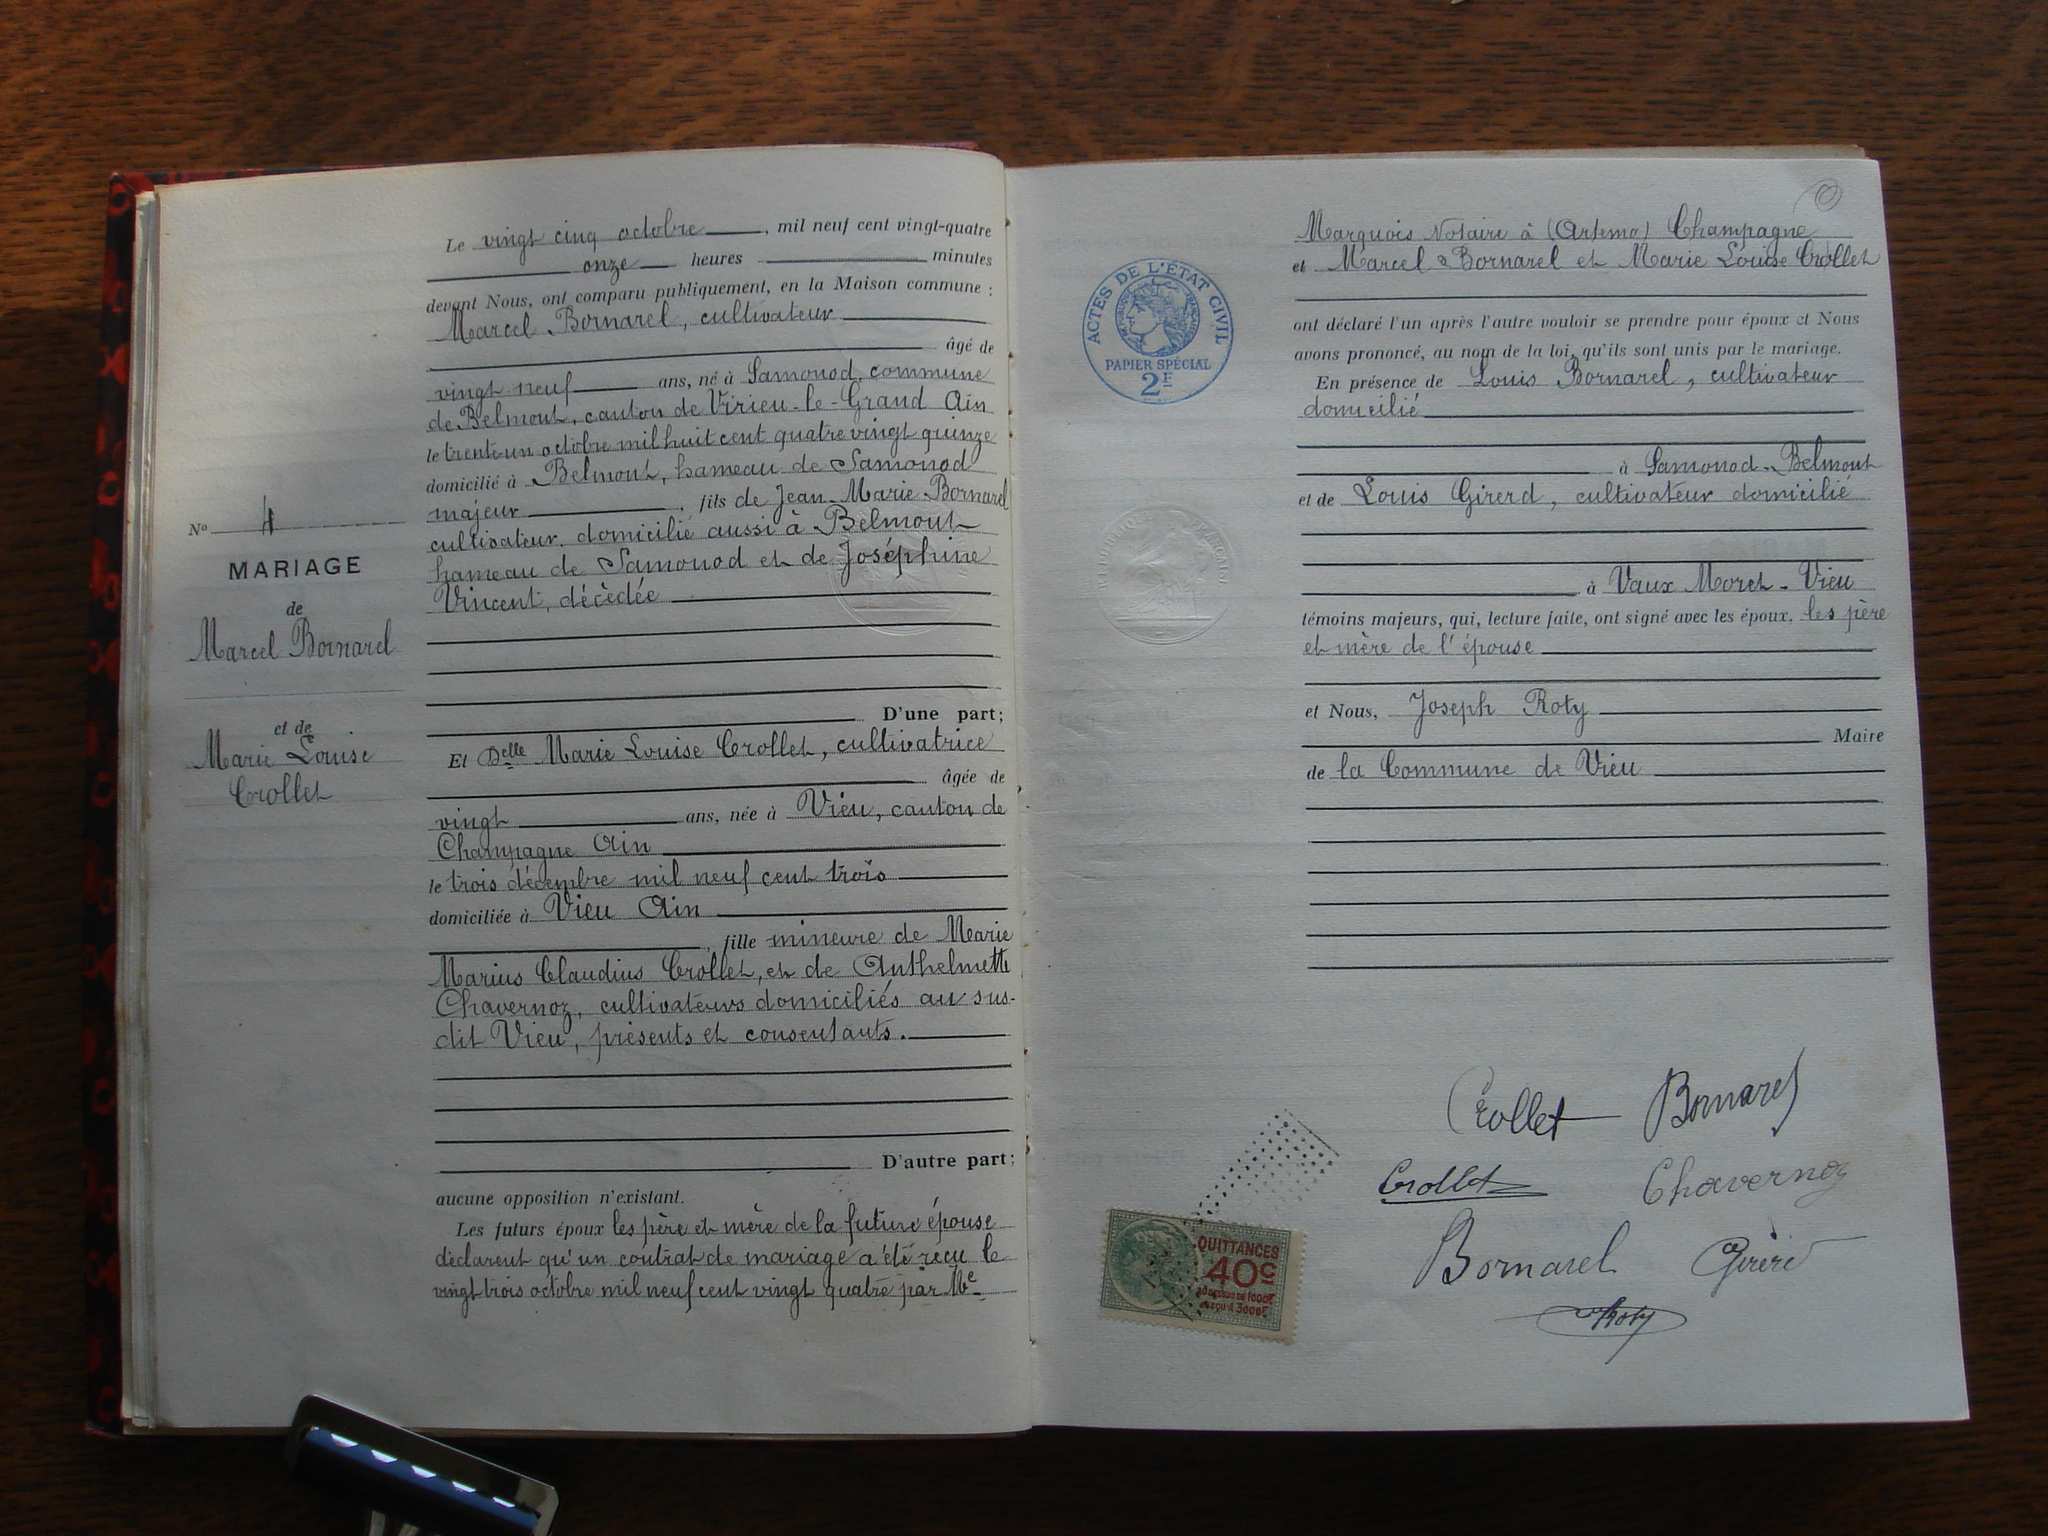 Le vingt cinq octobre, mil neuf cent vingt-quatre
onze heures minutes
devant Nous, ont comparu publiquement, en la Maison commune :
Marcel Bornarel, cultivateur
âgé de
vingt neuf ans, né à Samonod, commune
de Belmont, canton de Virieu-le-Grand Ain
le trente-un octobre mil huit cent quatre vingt quinze
domicilié à Belmont, hameau de Samonod
majeur, fils de Jean-Marie Bornarel
cultivateur, domicilié aussi à Belmont
hameau de Samonod et de Joséphine
Vincent, décédée
D'une part;
Et Delle Marie Louise Crollet, cultivatrice
âgée de
vingt ans, née à Vieu, canton de
Champagne Ain
le trois décembre mil neuf cent trois
domiciliée à Vieu Ain
, fille mineure de Marie
Marius Claudius Crollet, et de Anthelmette
Chavernoz, cultivateurs domiciliés au sus-
dit Vieu, présents et consentants.
D'autre part;
aucune opposition n'existant.
Les futurs époux les père et mère de la future épouse
déclarent qu'un contrat de mariage a été reçu le
vingt trois octobre mil neuf cent vingt quatre par Me
No 4
MARIAGE
de
Marcel Bornarel
et de
Marie Louise
Crollet
Marquois Notaire à Champagne
et Marcel Bornarel et Marie Louise Crollet
ont déclaré l'un après l'autre vouloir se prendre pour époux et Nous
avons prononcé, au nom de la loi, qu'ils sont unis par le mariage.
En présence de Louis Bornarel, cultivateur
domicilié
à Samonod-Belmont
et de Louis Girerd, cultivateur domicilié
à Vaux Moret-Vieu
témoins majeurs, qui, lecture faite, ont signé avec les époux, les père
et mère de l'épouse
et Nous, Joseph Roty
Maire
de la Commune de Vieu
ACTES DE L'ÉTAT CIVIL
RÉPUBLIQUE FRANÇAISE
PAPIER SPÉCIAL
2F
Crollet Bornarel
Crollet Chavernoz
Bornarel Girerd
Roty
QUITTANCES
40c